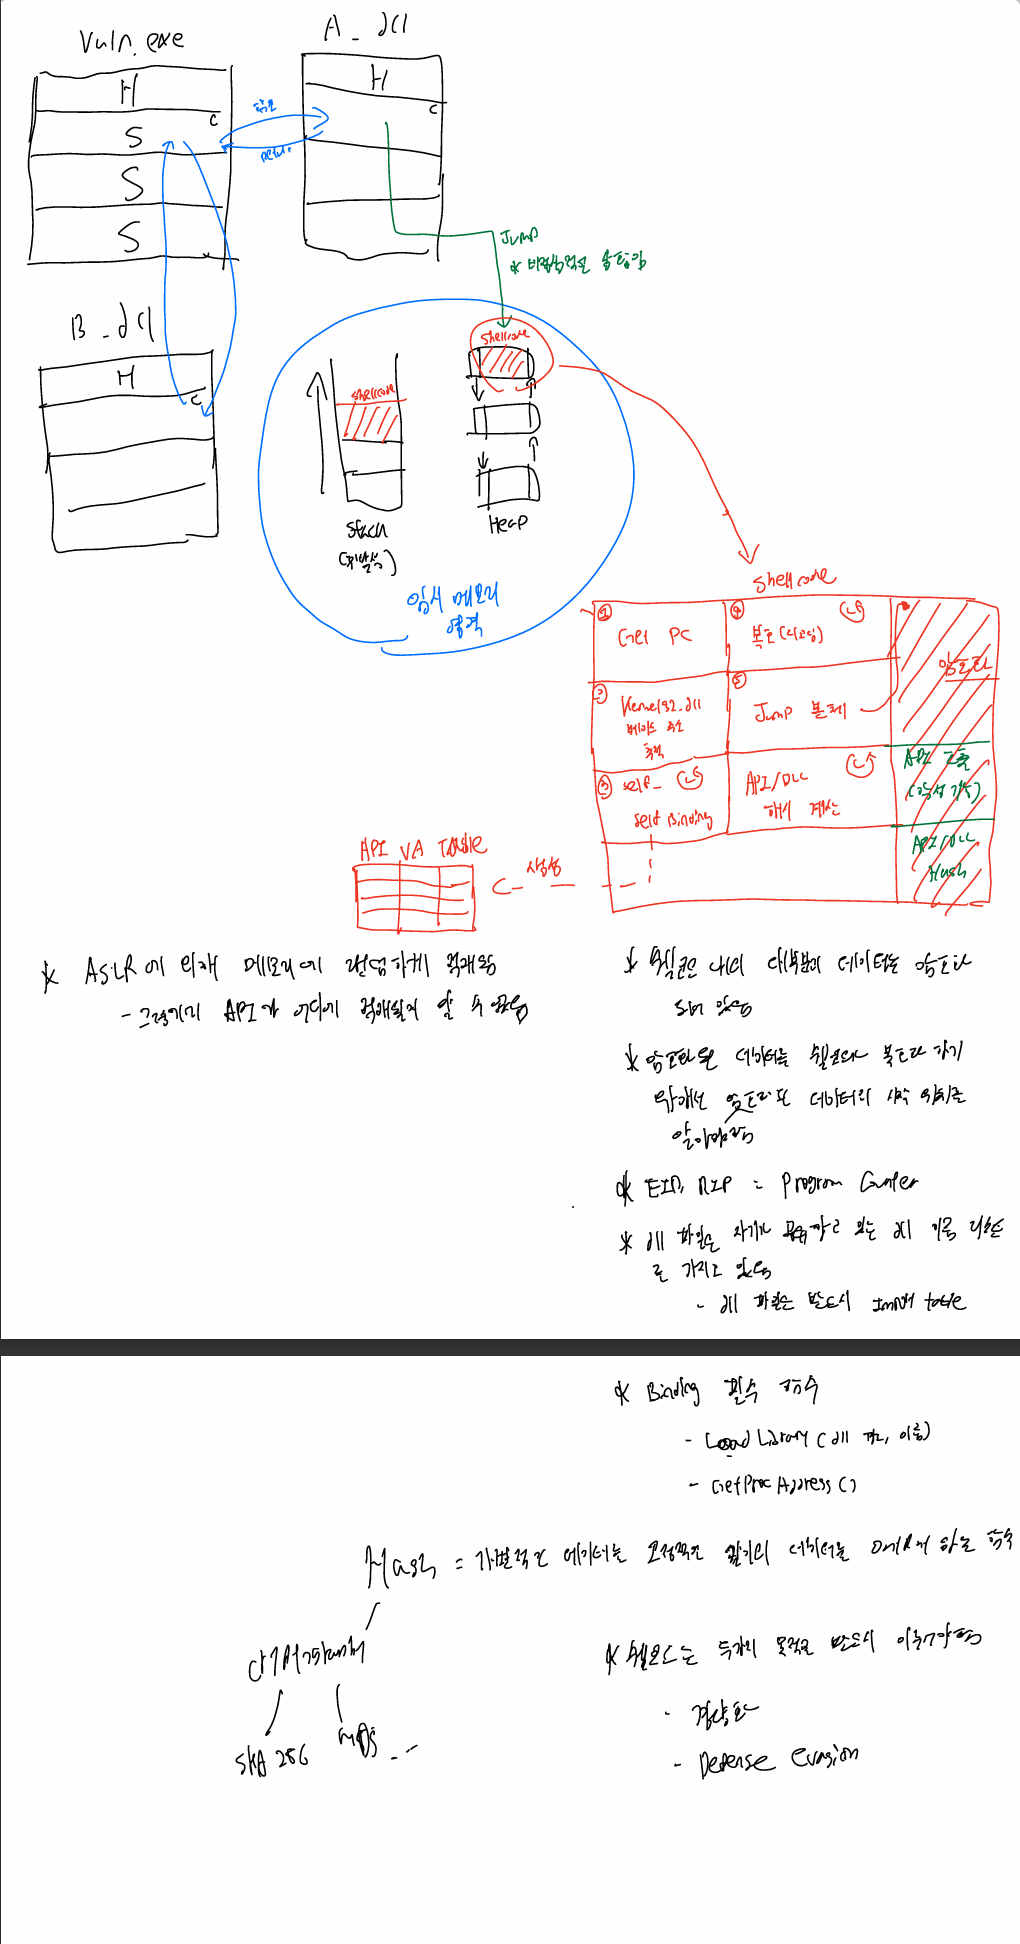 Vuln.exe
A_dll
H
H
C
C
S
S
S
호출
return
Jump
* 비정상적인 흐름임
B_dll
H
C
shellcode
shellcode
Stack
(휘발성)
Heap
임시 메모리
영역
Shellcode
① Get PC
④ 복호(디코딩)
암호화
② Kernel32.dll
베이스 주소
획득
⑤ Jump 본체
③ self_
self Binding
API/DLL
해시 계산
API 호출
(악성 기능)
API/DLL
Hash
API VA Table
생성
* ASLR에 의해 메모리에 랜덤하게 적재됨
- 그렇기에 API가 어디에 적재될지 알 수 없음
* 쉘코드 내의 대부분의 데이터는 암호화
되어 있음
* 암호화된 데이터를 쉘코드가 복호화 하기
위해선 암호화된 데이터의 시작 위치를
알아야함
* EIP, RIP = Program Counter
* dll 파일은 자기가 있는 dll 이름
로 가지고 있음
- dll 파일은 반드시 Import table
* Binding 필수 함수
- Load Library (dll 경로, 이름)
- GetProcAddress ()
Hash = 가변적인 데이터를 고정적인 길이의 데이터로 하는 함수
SHA 256
MD5 ...
* 쉘코드는 두가지 목적을 반드시 이뤄야함
- 경량화
- Defense evasion